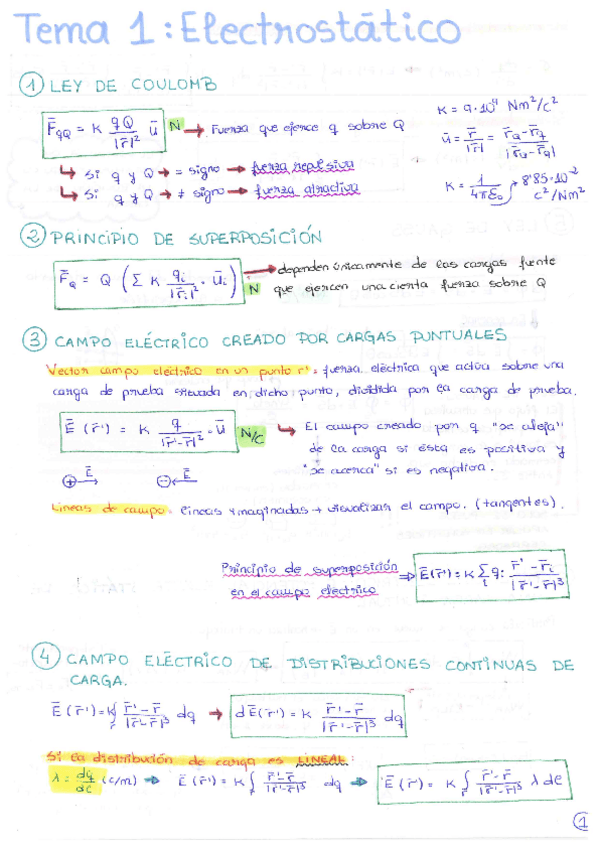 Tema 1: Electrostático
① LEY DE COULOMB
F̄qQ = K qQ/|r̄|² ū N → Fuerza que ejerce q sobre Q
K = 9·10⁹ Nm²/c²
ū = r̄/|r̄| = (r̄Q - r̄q)/|r̄Q - r̄q|
↳ Si q y Q → = signo → fuerza repulsiva
↳ Si q y Q → ≠ signo → fuerza atractiva
K = 1/4πε₀ → 8'85·10⁻² c²/Nm²
② PRINCIPIO DE SUPERPOSICIÓN
F̄Q = Q (Σ K qi/|r̄i|² · ūi) N → dependen únicamente de las cargas fuente
que ejercen una cierta fuerza sobre Q
③ CAMPO ELÉCTRICO CREADO POR CARGAS PUNTUALES
Vector campo eléctrico en un punto r': fuerza eléctrica que actúa sobre una
carga de prueba situada en dicho punto, dividida por la carga de prueba.
Ē (r̄') = K q/|r̄'-r̄|² · ū N/C ↳ El campo creado por q "se aleja"
de la carga si ésta es positiva y
"se acerca" si es negativa.
⊕→ Ē ⊖← Ē
Líneas de campo: líneas imaginadas → visualizar el campo. (tangentes).
Principio de superposición
en el campo eléctrico ⇒ Ē(r̄') = K Σi qi (r̄' - r̄i)/|r̄' - r̄|³
④ CAMPO ELÉCTRICO DE DISTRIBUCIONES CONTINUAS DE
CARGA.
Ē (r̄') = K∫ (r̄' - r̄)/|r̄' - r̄|³ dq → dĒ(r̄') = K (r̄' - r̄)/|r̄' - r̄|³ dq
Si la distribución de carga es LINEAL:
λ = dq/dl (c/m) → Ē (r̄') = K∫r (r̄' - r̄)/|r̄' - r̄|³ dq → Ē (r̄') = K∫r (r̄' - r̄)/|r̄' - r̄|³ λ dl
①